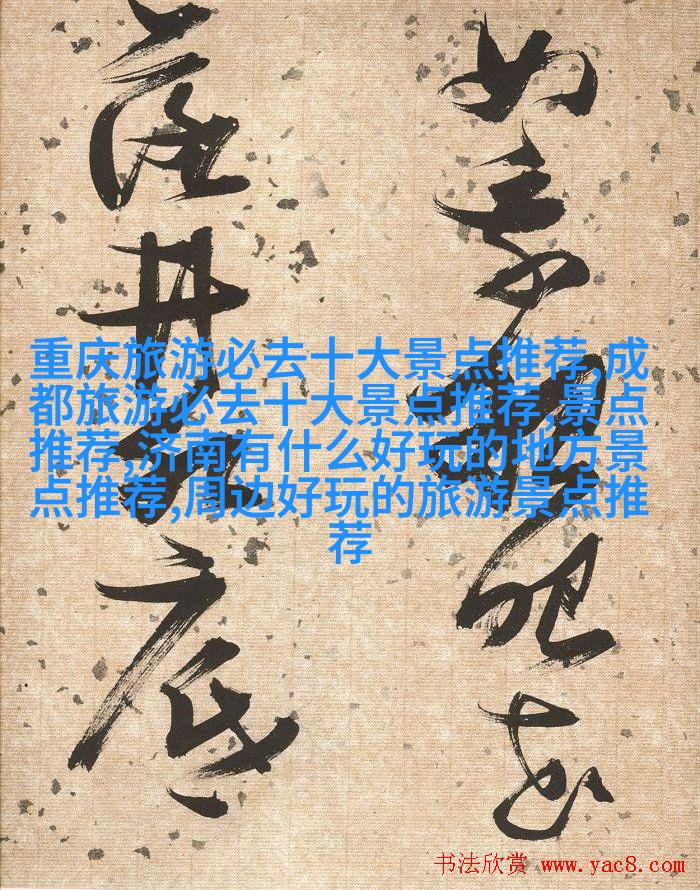 重庆旅游必去十大景点推荐,成
都旅游必去十大景点推荐,景点
推荐,济南有什么好玩的地方景
点推荐,周边好玩的旅游景点推
荐
落井底
书法欣赏 www.yac8.com